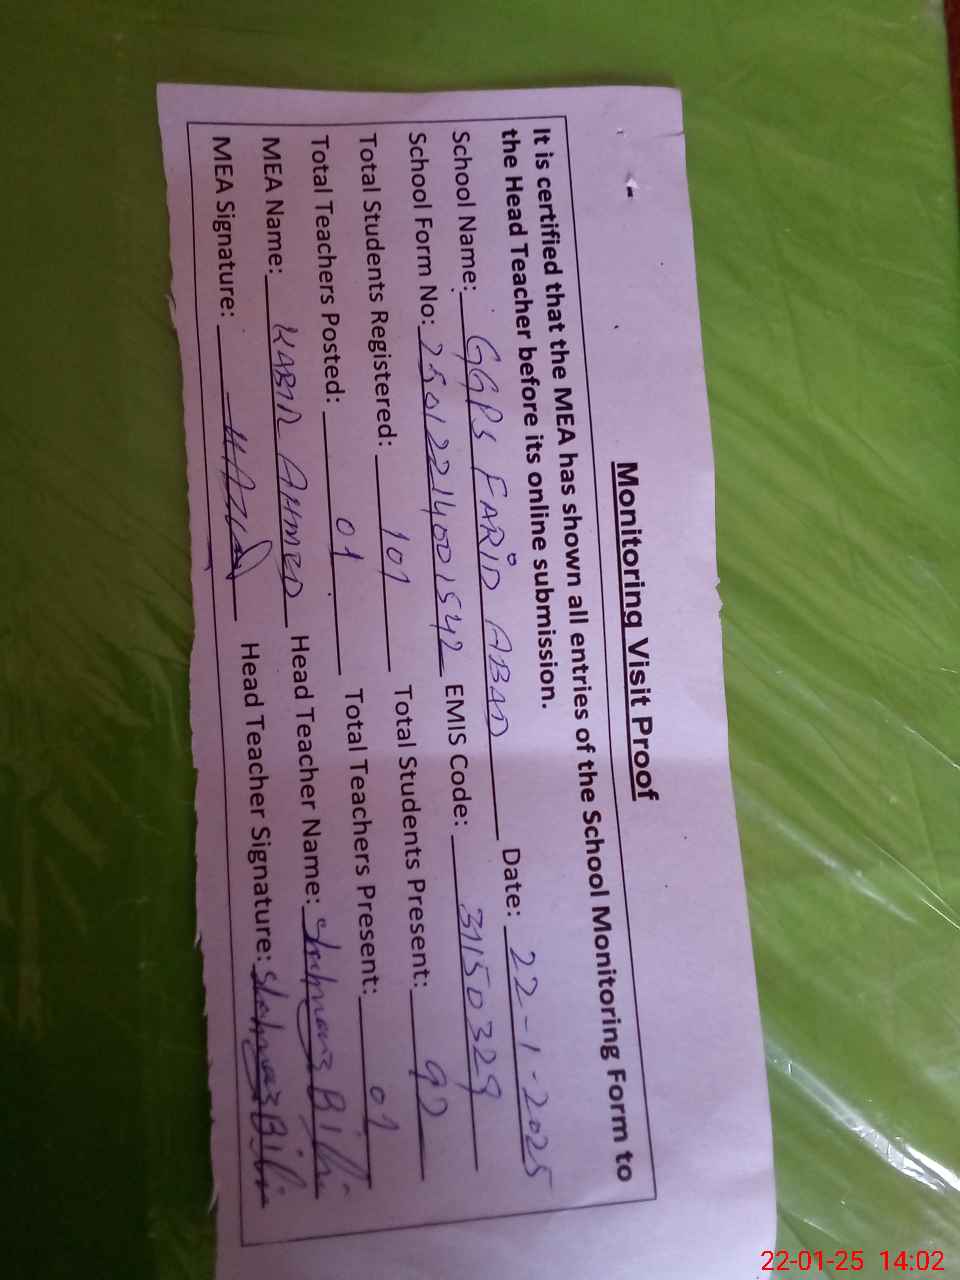 Monitoring Visit Proof
It is certified that the MEA has shown all entries of the School Monitoring Form to
the Head Teacher before its online submission.
School Name: GGPS FARID ABAD Date: 22-1-2025
School Form No: 25012214001542 EMIS Code: 31150329
Total Students Registered: 101 Total Students Present: 92
Total Teachers Posted: 01 Total Teachers Present: 01
MEA Name: KABIR AHMED Head Teacher Name: Shahnaz Bibi
MEA Signature: Head Teacher Signature: Shahnaz Bibi
22-01-25 14:02